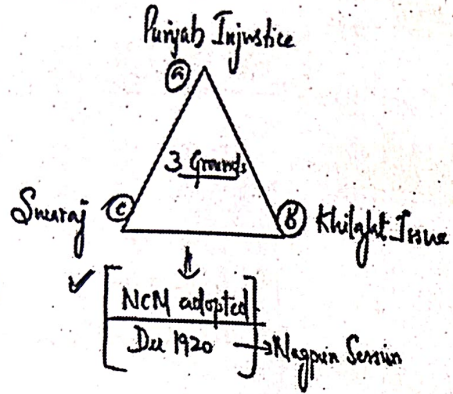 Punjab Injustice
(a)
3 Grounds
Swaraj (c)
(b) Khilafat Issue
NCM adopted
Dec 1920 → Nagpur Session